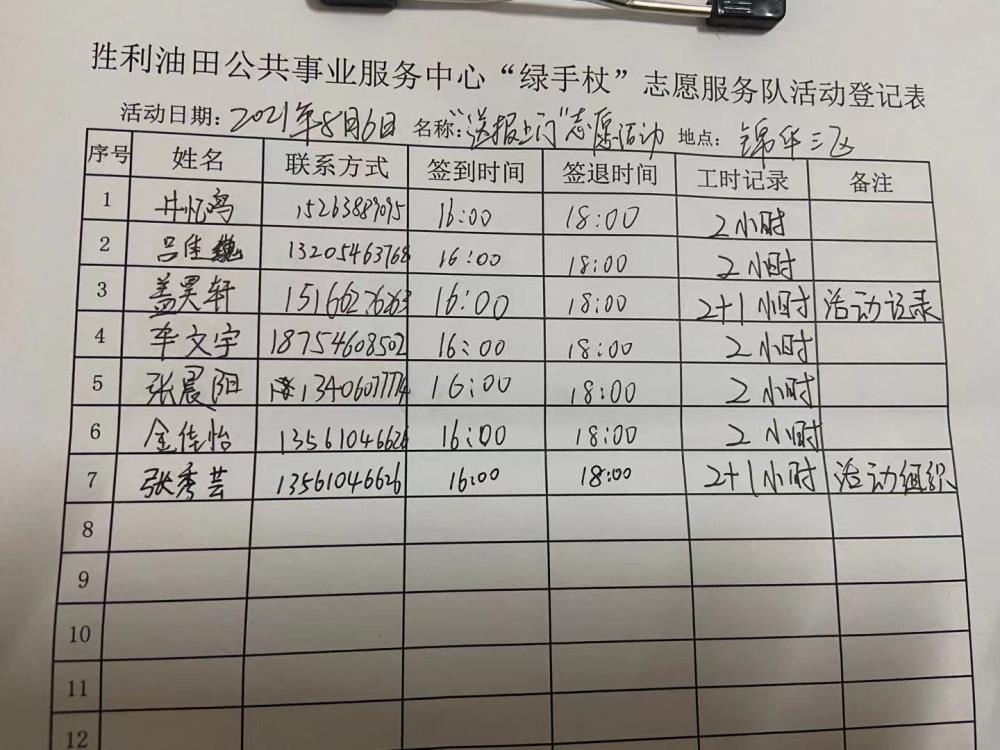 胜利油田公共事业服务中心“绿手杖”志愿服务队活动登记表
活动日期：2021年8月6日 名称：“送报上门”志愿活动 地点：锦华三区
序号 姓名 联系方式 签到时间 签退时间 工时记录 备注
1 井忆鸿 15263889095 16:00 18:00 2小时
2 吕佳巍 13205463768 16:00 18:00 2小时
3 盖昊轩 15166276263 16:00 18:00 2+1小时 活动记录
4 车文宇 18754608502 16:00 18:00 2小时
5 张晨阳 13406077774 16:00 18:00 2小时
6 金佳怡 13561046626 16:00 18:00 2小时
7 张秀芸 13561046626 16:00 18:00 2+1小时 活动组织
8
9
10
11
12